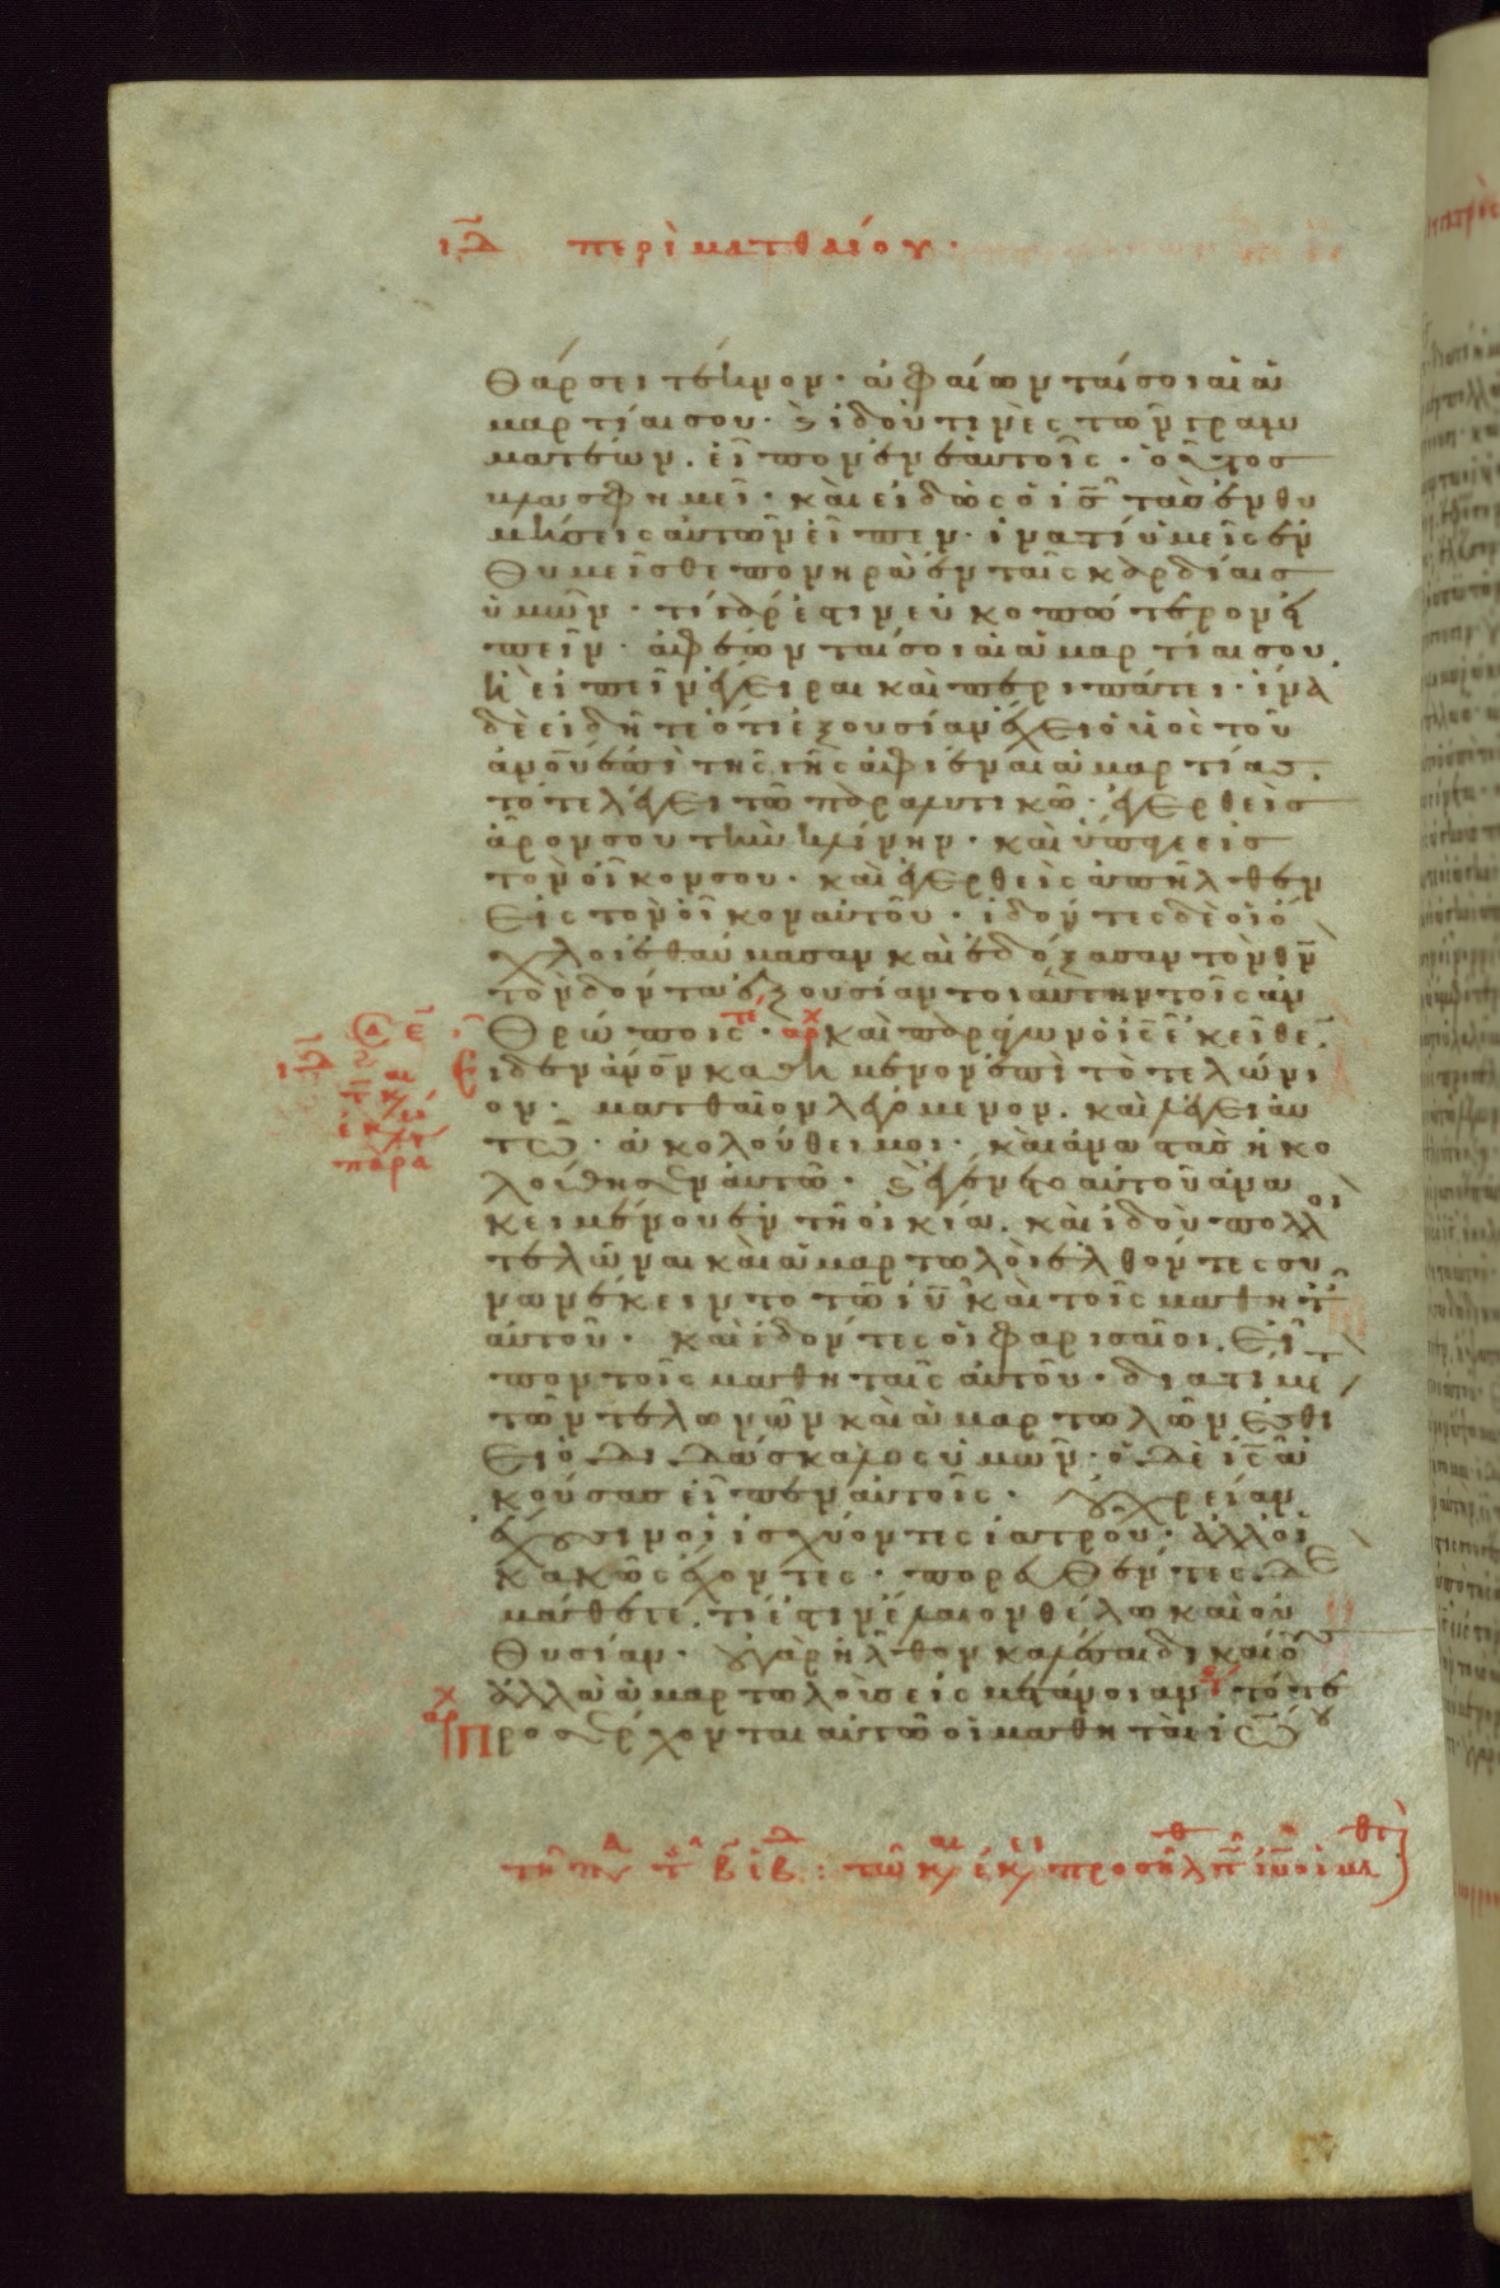 ιδ περὶ ματθαίου·
Θάρσει τέκνον· ἀφαίωνταί σοι αἱ ἁ
μαρτίαι σου· ϗ ἰδού τινὲς τῶν γραμ
ματέων. εἶπον ἐν ἑαυτοῖς· οὗτος
βλασφημεῖ· καὶ εἰδὼς ὁ ις τὰς ἐνθυ
μήσεις αὐτῶν εἶπεν· ἵνα τί ὑμεῖς ἐν
Θυμεῖσθε πονηρὰ ἐν ταῖς καρδίαις
ὑμῶν· τί γάρ ἐστιν εὐκοπώτερον εἰ
πεῖν· ἀφέωνταί σοι αἱ ἁμαρτίαι σου.
ἢ εἰπεῖν ἔγειραι καὶ περιπάτει· ἵνα
δὲ εἰδῆτε ὅτι ἐξουσίαν ἔχει ὁ υἱὸς τοῦ
ἀνοῦ ἐπὶ τῆς γῆς ἀφιέναι ἁμαρτίας.
τότε λέγει τῶ παραλυτικῶ· ἐγερθεὶς
ἆρον σου τὴν κλίνην· καὶ ὕπαγε εἰς
τὸν οἶκον σου· καὶ ἐγερθεὶς ἀπῆλθεν
Εἰς τὸν οἶκον αὐτοῦ· ἰδόντες δὲ οἱ ὄ
χλοι ἐθαύμασαν καὶ ἐδόξασαν τὸν θν
τὸν δόντα ἐξουσίαν τοιαύτην τοῖς ἀν
Θρώποις· καὶ παράγων ὁ ις ἐκεῖθε
Ειδεν ἀνον καθήμενον ἐπὶ τὸ τελώνι
ον· ματθαῖον λεγόμενον. καὶ λέγει αὐ
τῶ· ἀκολούθει μοι· καὶ ἀναστὰς ἠκο
λούθησεν αὐτῶ· ϗ ἐγένετο αὐτοῦ ἀνα
κειμένου ἐν τῆ οἰκία. καὶ ἰδοὺ πολλοὶ
τελῶναι καὶ ἁμαρτωλοὶ ἐλθόντες συ
νανέκειντο τῶ ιυ καὶ τοῖς μαθητ
αὐτοῦ· καὶ ἰδόντες οἱ φαρισαῖοι. Εἶ
πον τοῖς μαθηταῖς αὐτοῦ· διατί με
τῶν τελωνῶν καὶ ἁμαρτωλῶν ἐσθί
Ει ὁ διδάσκαλος ὑμῶν· ὁ δὲ ις ἀ
κούσας εἶπεν αὐτοῖς· οὐ χρείαν
ἔχουσιν οἱ ἰσχύοντες ἰατροῦ· ἀλλ οἱ
κακῶς ἔχοντες· πορευθέντες δὲ
μάθετε. τί ἐστιν ἔλαιον θέλω καὶ οὐ
Θυσίαν· οὐ γὰρ ἦλθον καλέσαι δικαίο
ἀλλὰ ἁμαρτωλοὺς εἰς μετάνοιαν· τότε
Προσέρχονται αὐτῶ οἱ μαθηταὶ ιω